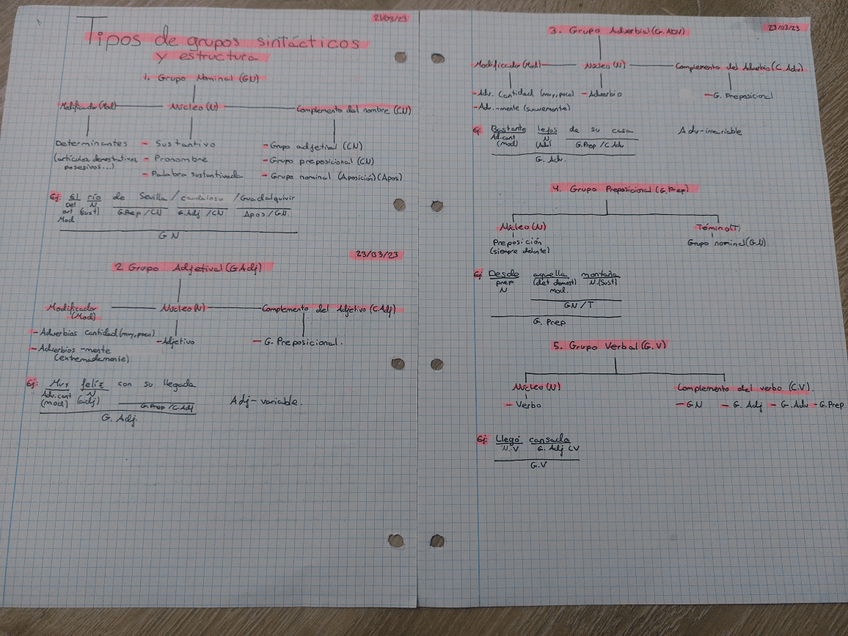 21/03/23
Tipos de grupos sintácticos
y estructura
1. Grupo Nominal (GN)
Modificador (Mod) Núcleo (N) Complemento del nombre (CN)
Determinantes - Sustantivo - Grupo adjetival (CN)
(artículos, demostrativos - Pronombre - Grupo preposicional (CN)
posesivos...) - Palabra sustantivada - Grupo nominal (Aposición) (Apos)
Ej: El río de Sevilla / caudaloso / Guadalquivir
Det N G.Prep / CN G.Adj / CN Apos / GN.
art (Sust)
Mod
GN
23/03/23
2. Grupo Adjetival (G.Adj)
Modificador Núcleo (N) Complemento del Adjetivo (C.Adj)
(Mod)
- Adverbios cantidad (muy, poco) - Adjetivo - G. Preposicional.
- Adverbios -mente
(extremadamente)
Ej: Muy feliz con su llegada Adj - variable.
Adv.cant N G.Prep / C.Adj
(mod) (adj)
G. Adj.
3. Grupo Adverbial (G. ADV) 23/03/23
Modificador (Mod) Núcleo (N) Complemento del Adverbio (C. Adv)
- Adv. Cantidad (muy, poco) - Adverbio - G. Preposicional
- Adv. -mente (suavemente)
Ej: Bastante lejos de su casa Adv-invariable
Ad.cant N G.Prep / C.Adv
(mod) (Adv)
G. Adv.
4. Grupo Preposicional (G. Prep)
Núcleo (N) Término (T)
Preposición Grupo nominal (GN)
(siempre delante)
Ej: Desde aquella montaña
prep (det demost) N. (Sust)
N mod.
GN / T
G. Prep
5. Grupo Verbal (G.V)
Núcleo (N) Complemento del verbo (C.V).
- Verbo - GN - G. Adj - G. Adv - G. Prep
Ej: Llegó cansada
N. V G. Adj CV
G.V